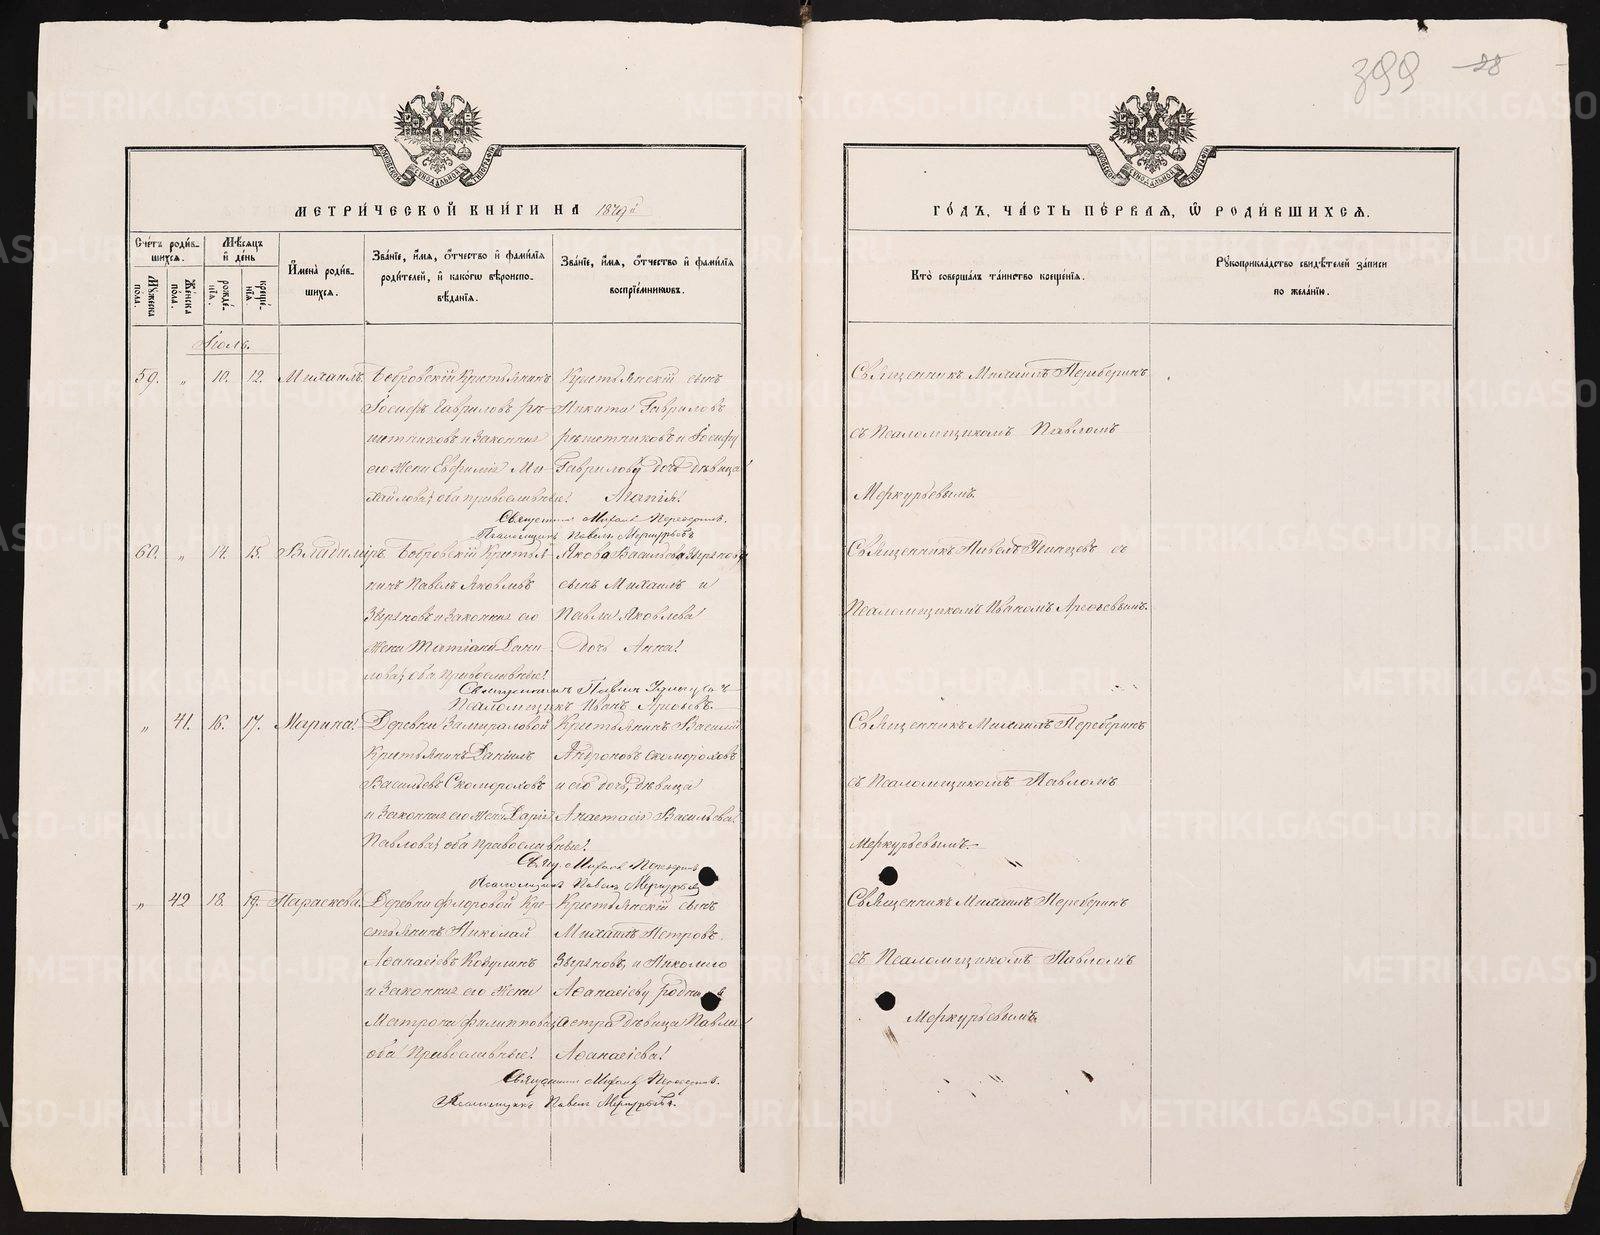 399 28
МЕТРИ́ЧЕСКОЙ КНИ́ГИ НА 1879й
ГО́ДЪ, ЧА́СТЬ ПЕ́РВАЯ, Ѿ РОДИ́ВШИХСЯ.
Сче́тъ роди́в-
шихся.
Му́жеска по́ла.
Же́нска по́ла.
Мѣ́сяцъ
и҆ де́нь
рожде́-
нїя.
креще́-
нїя.
И҆мена̀ роди́в-
шихся.
Зва́нїе, и҆́мя, ѻ҆́тчество и҆ фами́лїя
роди́телей, и҆ како́гѡ вѣроиспо-
вѣ́данїя.
Зва́нїе, и҆́мя, ѻ҆́тчество и҆ фами́лїя
воспрїе́мникѡвъ.
Кто̀ соверша́лъ та́инство креще́нїя.
Рꙋкоприкла́дство свидѣ́телей за́писи
по жела́нїю.
Іюль.
59. „ 10. 12. Михаилъ.
Бобровскій Крестьянинъ
Іосифъ Гавриловъ Рѣ-
шетниковъ и законная
его жена Евфимія Ми-
хайлова, оба православные.
Крестьянскій сынъ
Никита Гавриловъ
Рѣшетниковъ и Іосифа
Гаврилова дочь дѣвица
Агапія.
Священникъ Михаилъ Переберинъ
съ Псаломщикомъ Павломъ
Меркурьевымъ.
Священникъ Михаилъ Переберинъ.
Псаломщикъ Павелъ Меркурьевъ
60. „ 14. 15. Владимиръ
Бобровскій Крестья-
нинъ Павелъ Яковлевъ
Звѣряновъ и законная его
жена Татіана Дани-
лова, оба православные.
Якова Васильева Звѣрянова
сынъ Михаилъ и
Павла Яковлева
дочь Анна.
Священникъ Павелъ съ
Псаломщикомъ Иваномъ Арефьевымъ.
Священникъ Павелъ
Псаломщикъ Иванъ Арефьевъ.
„ 41. 16. 17. Марина.
Деревни Замираловой
Крестьянинъ Даніилъ
Васильевъ Скомороховъ
и законная его жена Дарія
Павлова, оба православные.
Крестьянинъ Василій
Андроновъ Скомороховъ
и его дочь, дѣвица
Анастасія Васильева.
Священникъ Михаилъ Переберинъ
съ Псаломщикомъ Павломъ
Меркурьевымъ.
Свящ. Михаилъ Переберинъ
Псаломщикъ Павелъ Меркурьевъ
„ 42 18. 19. Параскева.
Деревни Флоровой Кре-
стьянинъ Николай
Афанасіевъ
и законная его жена
Матрона Филиппова,
оба Православные.
Крестьянскій сынъ
Михаилъ Петровъ
Звѣряновъ, и Николаю
Афанасіеву родная
сестра дѣвица Павла
Афанасіева.
Священникъ Михаилъ Переберинъ
съ Псаломщикомъ Павломъ
Меркурьевымъ.
Священникъ Михаилъ Переберинъ.
Псаломщикъ Павелъ Меркурьевъ.
METRIKI.GASO-URAL.RU